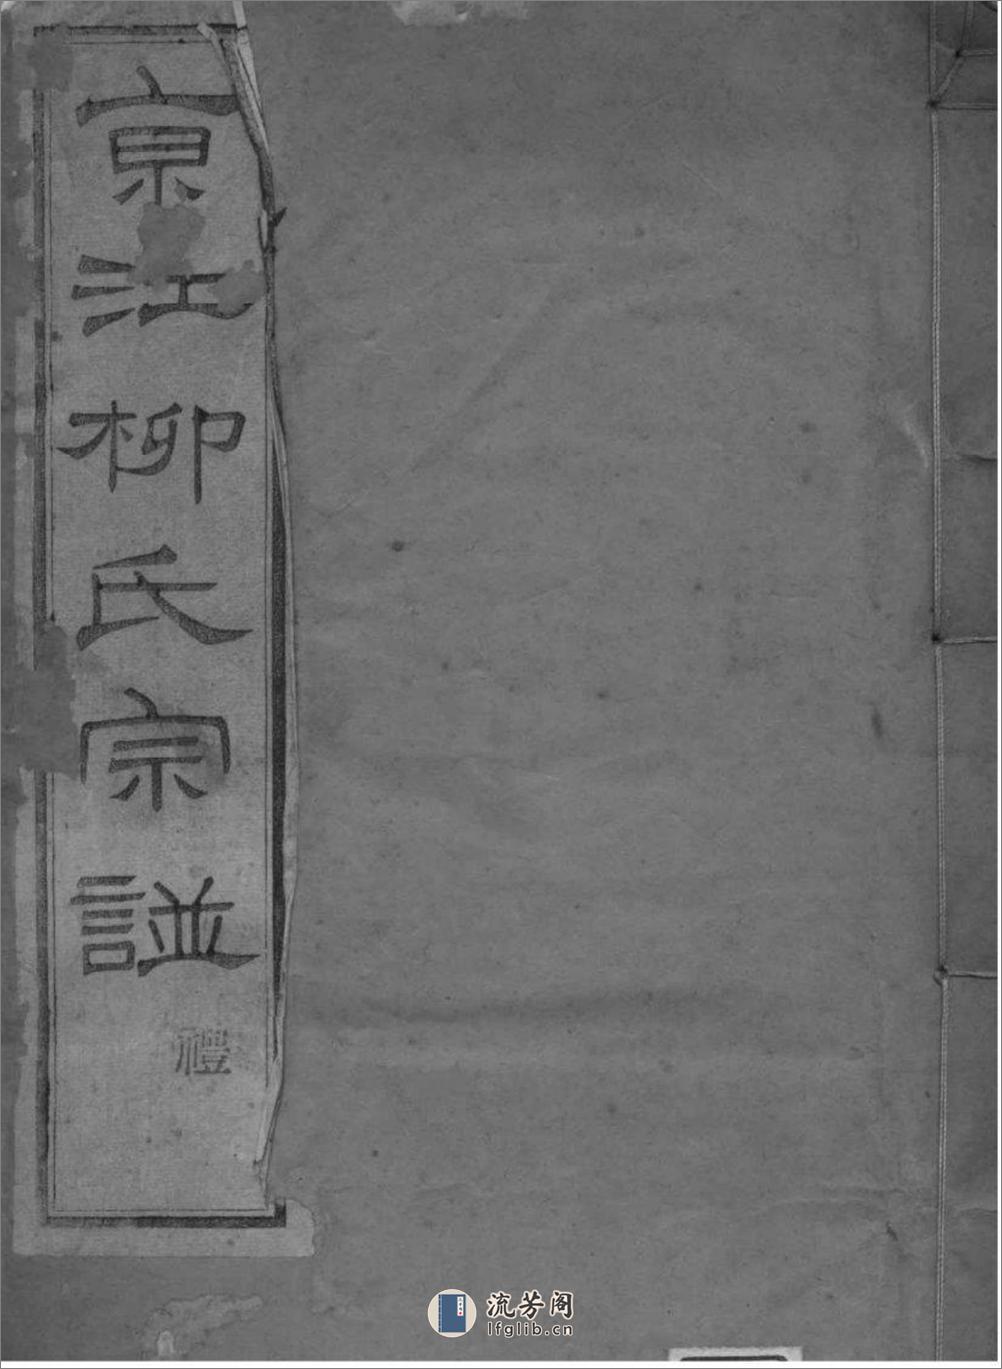 京江柳氏宗譜
禮
流芳阁
lfglib.cn